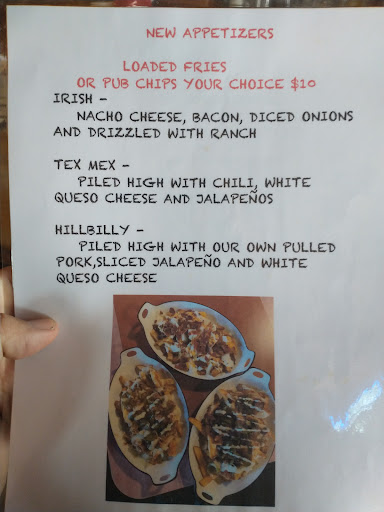 NEW APPETIZERS
LOADED FRIES
OR PUB CHIPS YOUR CHOICE $10
IRISH -
NACHO CHEESE, BACON, DICED ONIONS
AND DRIZZLED WITH RANCH
TEX MEX -
PILED HIGH WITH CHILI, WHITE
QUESO CHEESE AND JALAPEÑOS
HILLBILLY -
PILED HIGH WITH OUR OWN PULLED
PORK,SLICED JALAPEÑO AND WHITE
QUESO CHEESE